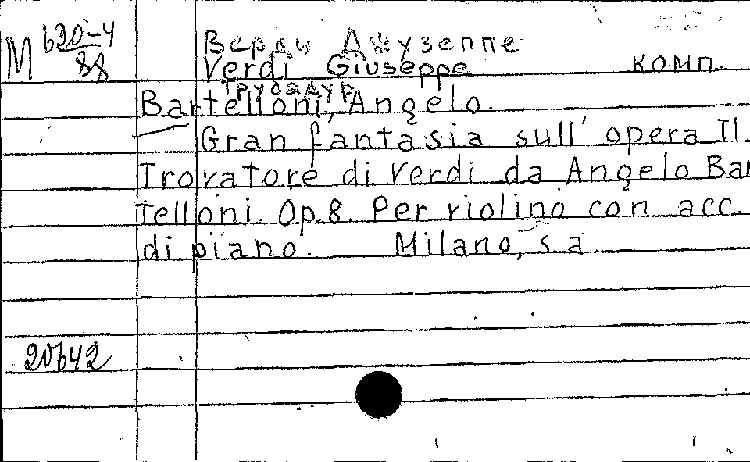 M 620-4
88
Верди Джузеппе
Verdi Giuseppe комп.
Трубадур
Bartelloni, Angelo.
Gran fantasia sull' opera Il
Trovatore di Verdi da Angelo Bar
telloni. Op. 8. Per violino con acc.
di piano. Milano, s. a
20642